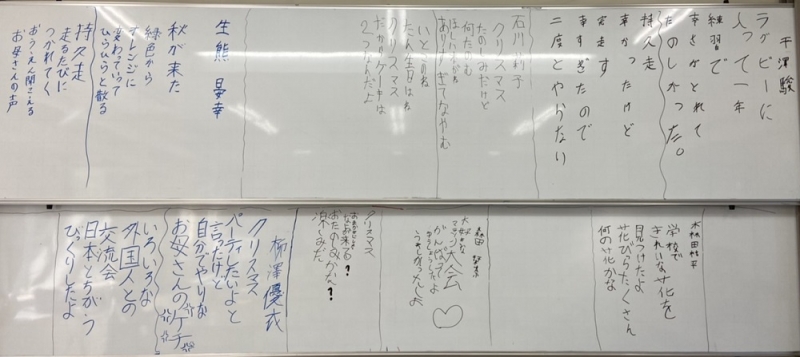 干澤駿
ラグビーに
入って一年
練習で
幸さがとれて
たのしかったな。
持久走
辛かったけど
完走す
辛すぎたので
二度とやらない
石川
クリスマス
たのしみだけど
何たのむ
ほしいものが
ありすぎてなやむ
いとこのね
たん生日はね
クリスマス
だからケーキは
2つなんだよ
生熊 晏幸
秋が来た
緑色から
オレンジに
変わっていって
ひらひらと散る
持久走
走るたびに
つかれてく
おうえん聞こえる
お母さんの声
学校で
きれいな花を
見つけたよ
花びらたくさん
何の花かな
森田
大好きな
マラソン大会
がんばってよ
うれしかったよ
クリスマス
なにが来る?
おたのしみかな?
楽しみだ
柳澤優衣
クリスマス
パーティしたいよと
言ったけど
自分でやりな
お母さんのケチ
いろいろな
外国人との
交流会
日本とちがう
びっくりしたよ